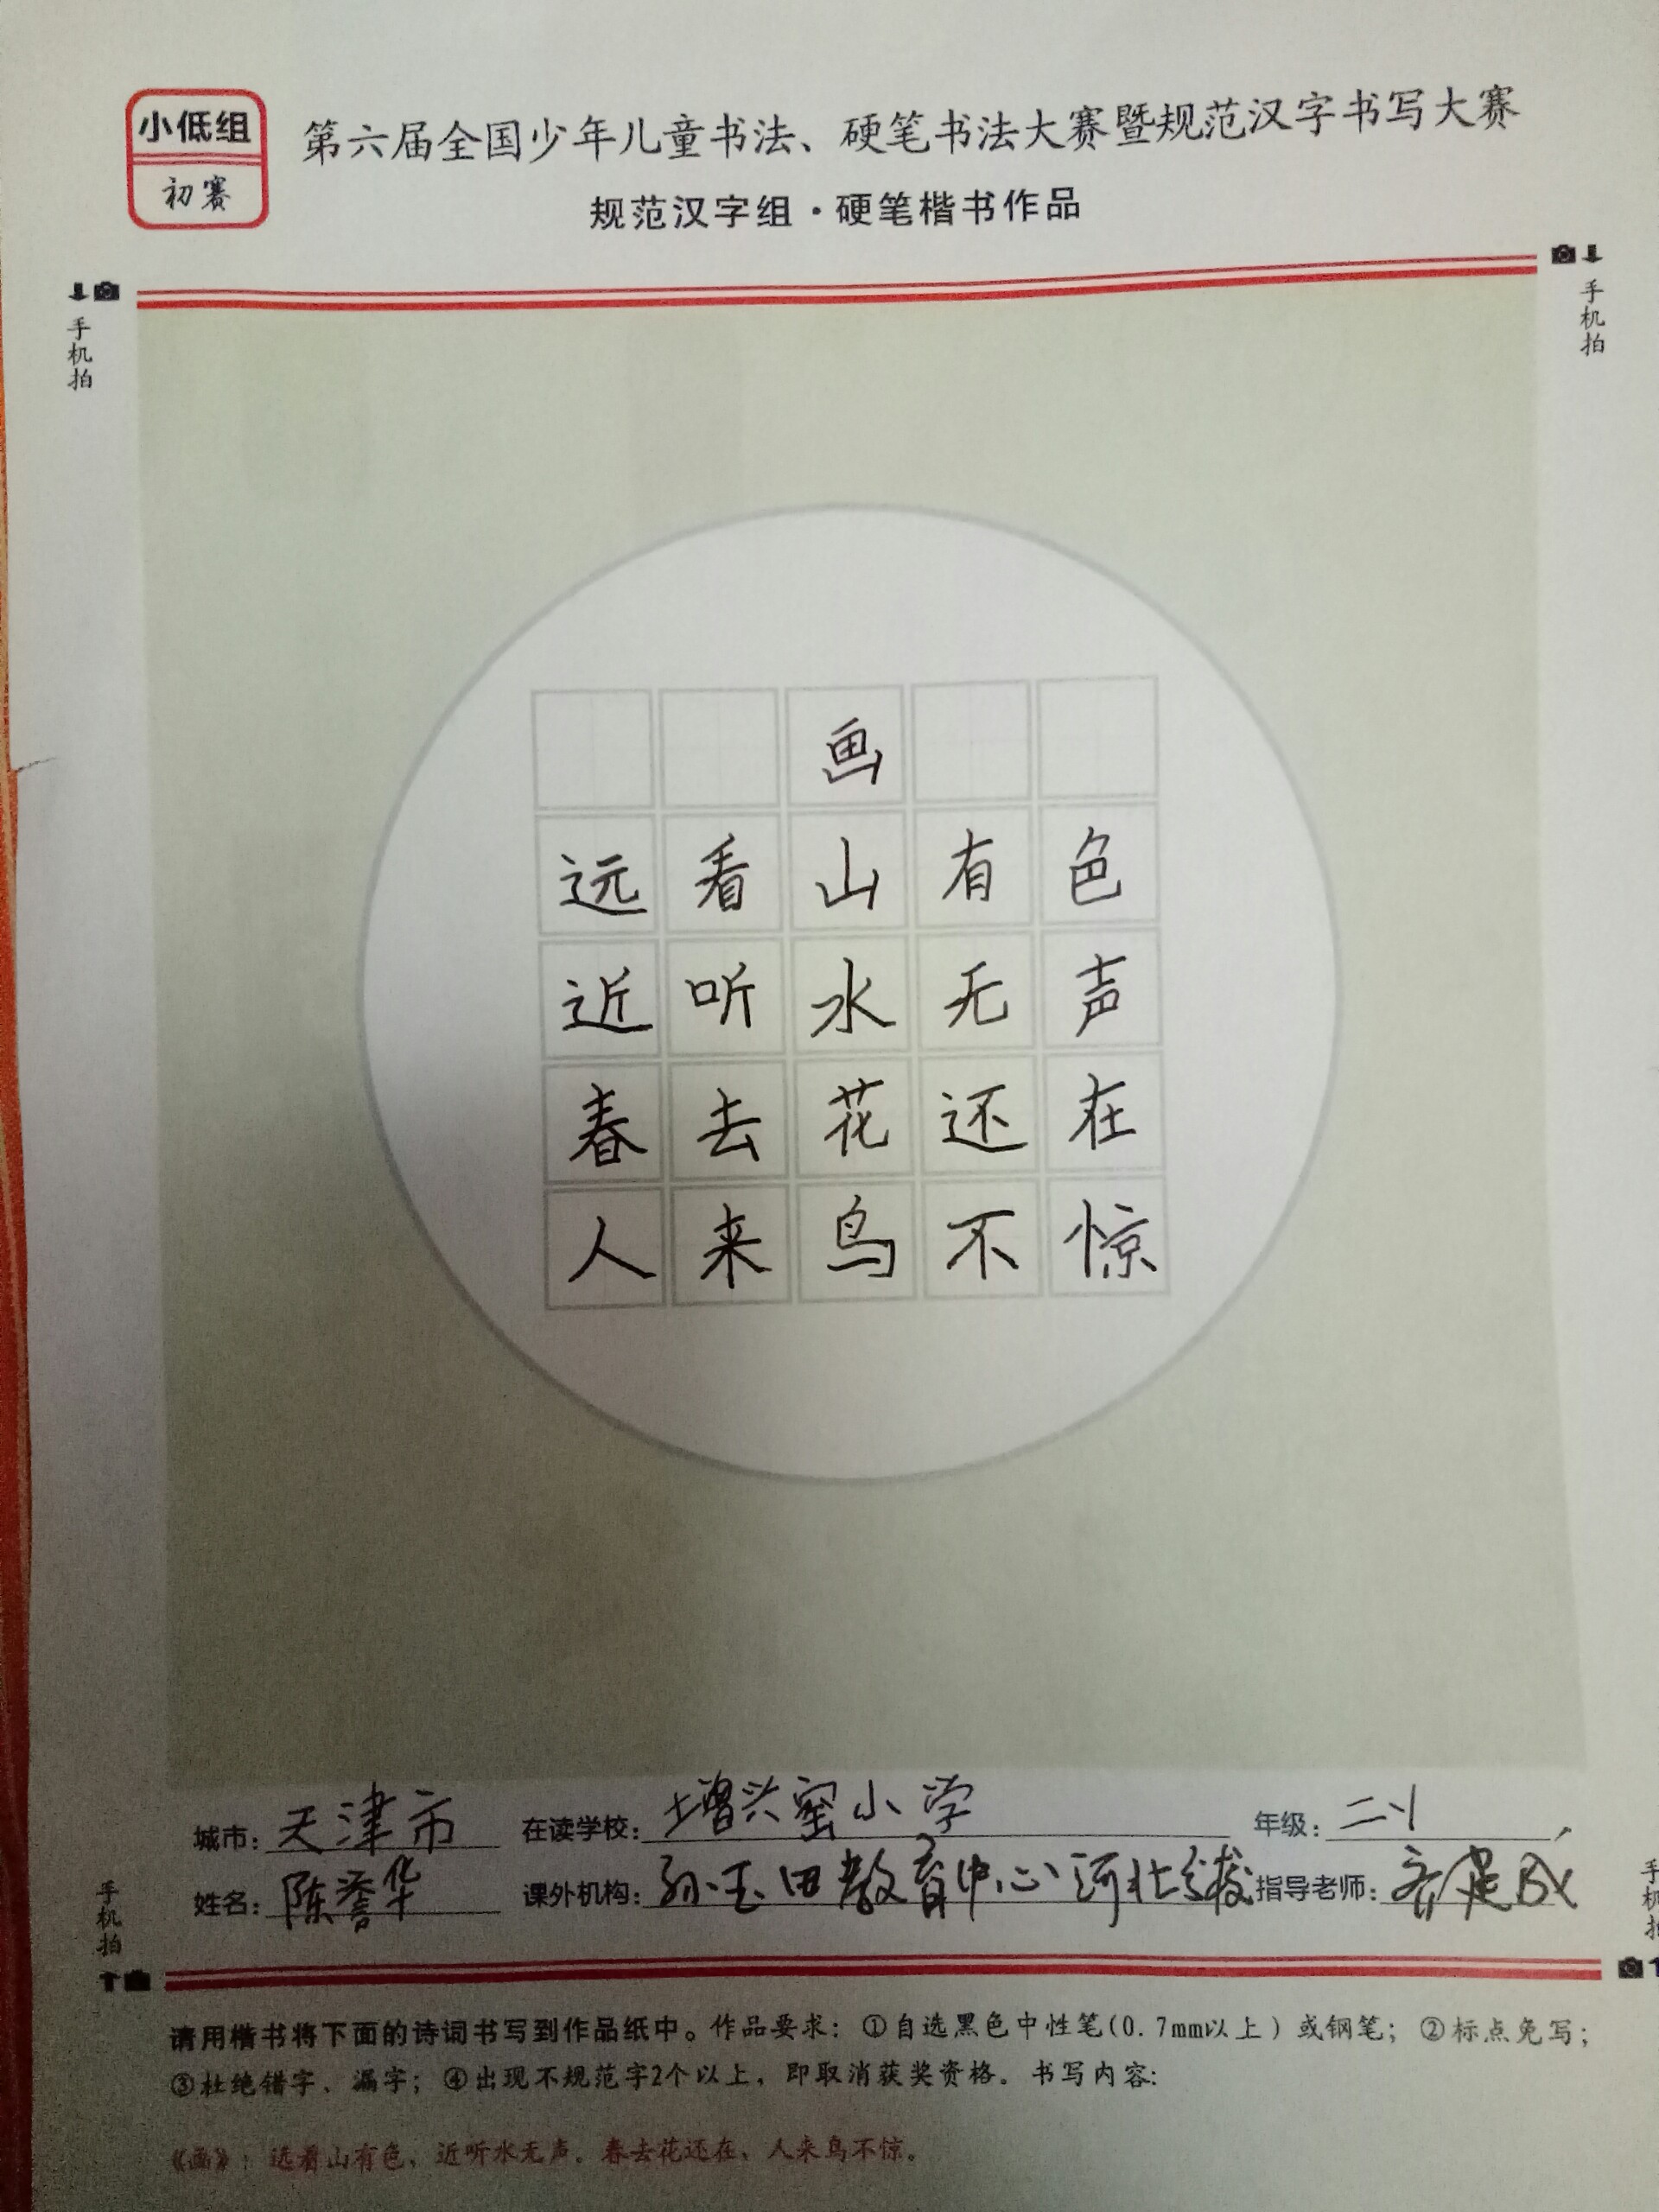 小低组
初赛
第六届全国少年儿童书法、硬笔书法大赛暨规范汉字书写大赛
规范汉字组·硬笔楷书作品
手机拍
手机拍
画
远看山有色
近听水无声
春去花还在
人来鸟不惊
城市：天津市 在读学校：增兴窑小学 年级：二、1
姓名：陈誉华 课外机构：孙玉田教育中心河北分校 指导老师：齐建成
手机拍
手机拍
请用楷书将下面的诗词书写到作品纸中。作品要求：①自选黑色中性笔(0.7mm以上）或钢笔；②标点免写；
③杜绝错字、漏字；④出现不规范字2个以上，即取消获奖资格。书写内容：
《画》：远看山有色，近听水无声。春去花还在，人来鸟不惊。